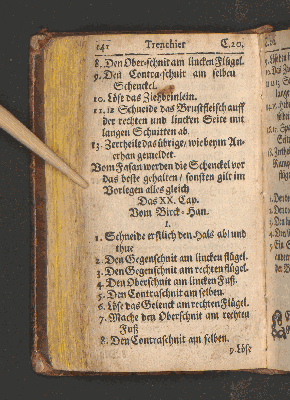 141 Trenchier C. 20.
8. Den Ober-schnit am lincken Flügel.
9. Den Contra-schnit am selben
Schenckel.
10. Löse das Ziehbeinlein.
11. 12 Schneide das Brustfleisch auff
der rechten und lincken Seite mit
langen Schnitten ab.
13. Zertheile das übrige / wie beym An-
erhan gemeldet.
Vom Fasan werden die Schenckel vor
das beste gehalten / sonsten gilt im
Vorlegen alles gleich
Das XX. Cap.
Vom Birck-Han.
I.
1. Schneide erstlich den Hals ab / und
thue
2. Den Gegenschnit am lincken flügel.
3. Den Gegenschnit am rechten flügel.
4. Den Oberschnit am lincken Fuß.
5. Den Contraschnit am selben.
6. Löse das Gelenck am rechten Flügel.
7. Mache den Oberschnit am rechten
Fuß
8. Den Contraschnit am selben.
9. Löse